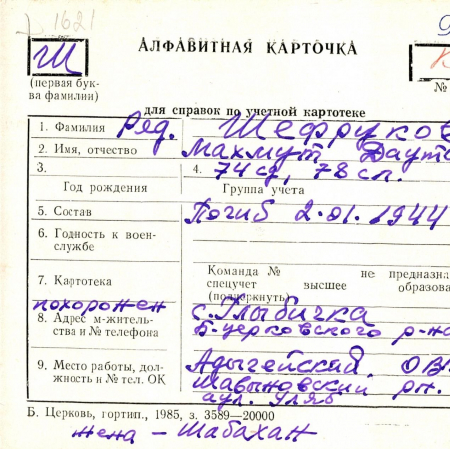 Д 1621
Ш
АЛФАВИТНАЯ КАРТОЧКА
(первая бук-
ва фамилии)
№
для справок по учетной картотеке
1. Фамилия Ряд. Шефруков
2. Имя, отчество Махмут Даут
3. 4. 74 сд, 78 сп.
Год рождения Группа учета
5. Состав Погиб 2.01.1944
6. Годность к воен-
службе
Команда № не предназна
7. Картотека спецучет высшее образова
(подчеркнуть)
похоронен с. Глыбичка
8. Адрес м-житель-
ства и № телефона Б-церковского р-на
9. Место работы, дол-
жность и № тел. ОК Адыгейский. ОВ
Шавыновский рн.
аул. Уляб
Б. Церковь, гортип., 1985, з. 3589—20000
жена – Шабахан